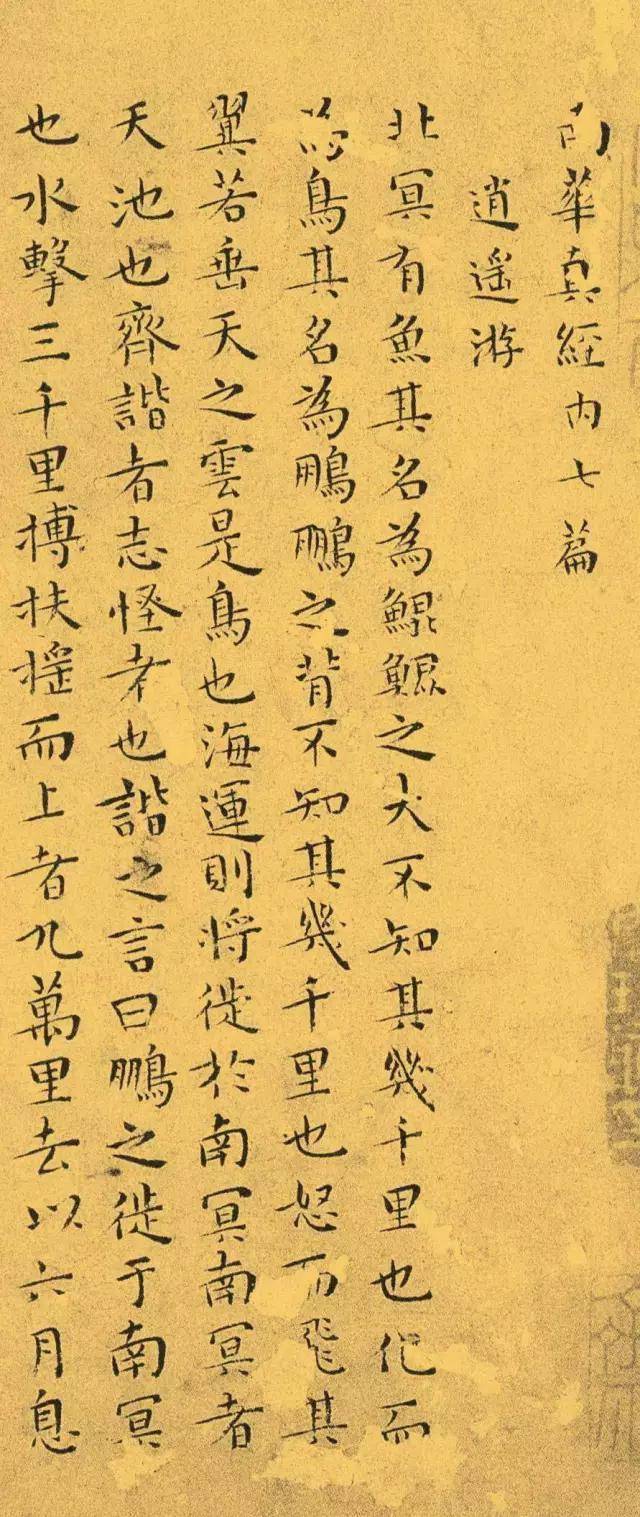 南華真經内七篇
逍遥游
北冥有魚其名為鯤鯤之大不知其幾千里也化而
為鳥其名為鵬鵬之背不知其幾千里也怒而飛其
翼若垂天之雲是鳥也海運則將徙於南冥南冥者
天池也齊諧者志怪者也諧之言曰鵬之徙于南冥
也水擊三千里搏扶搖而上者九萬里去以六月息